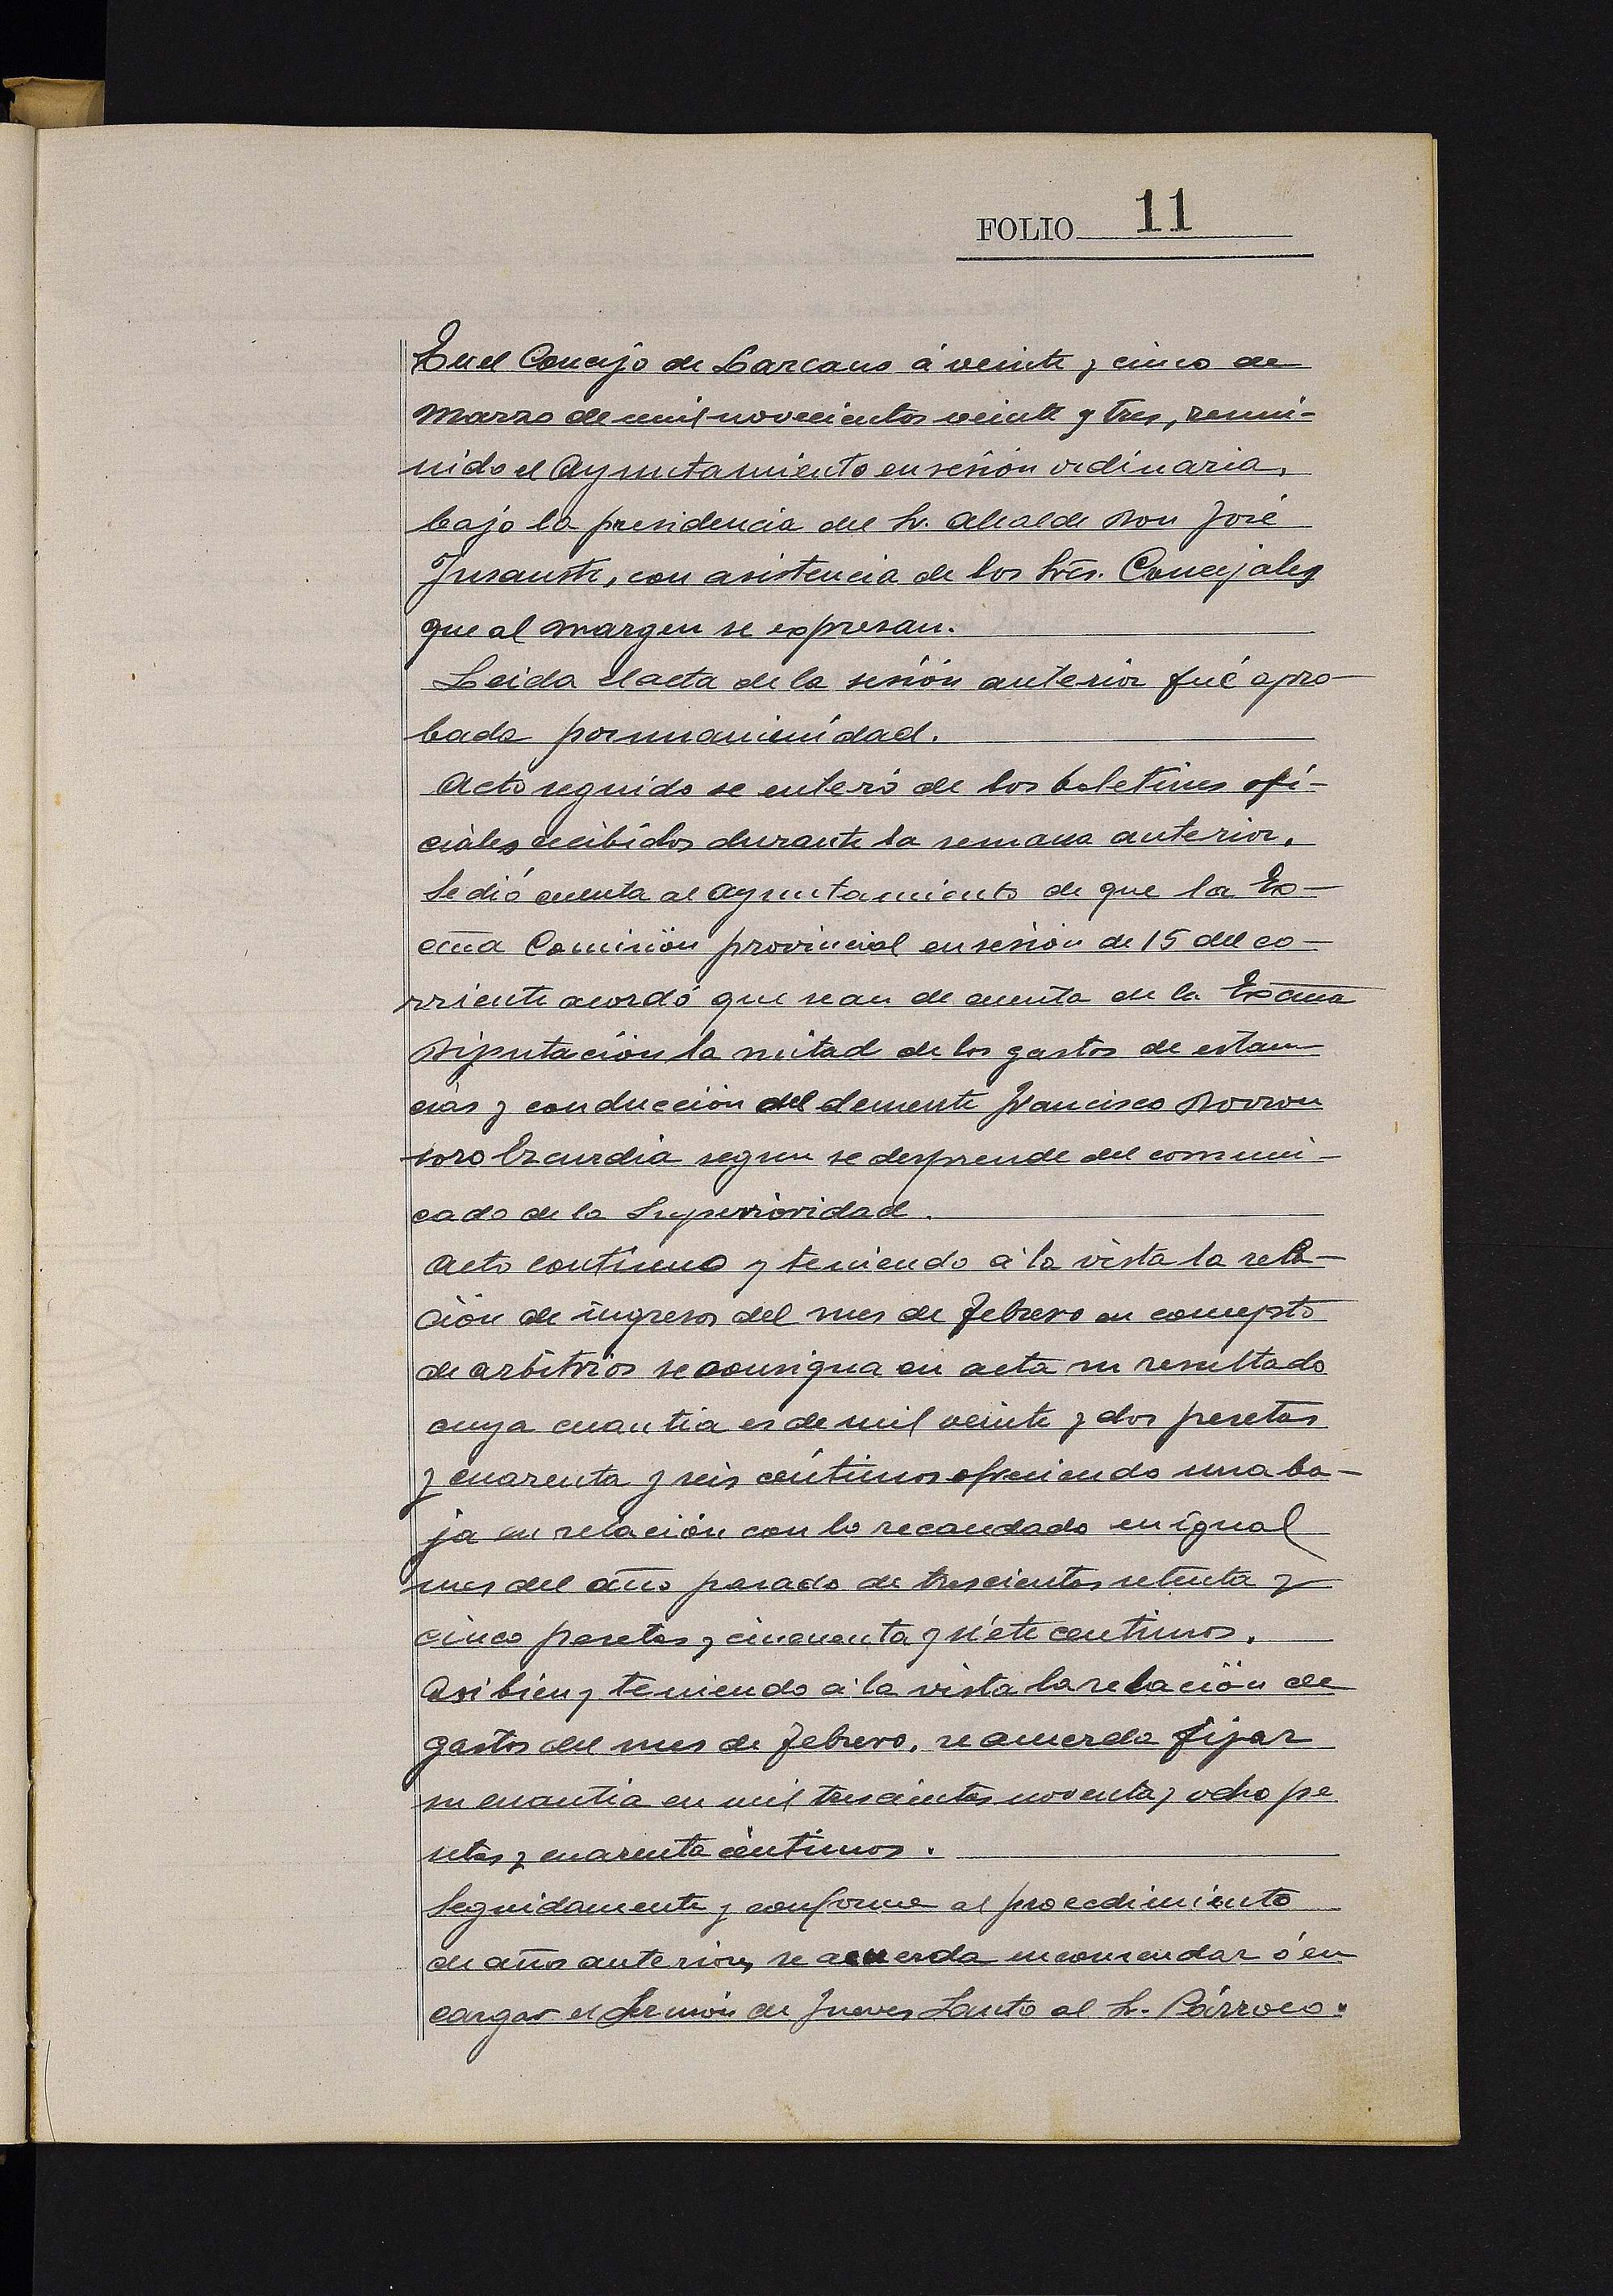 FOLIO 11
En el Concejo de Lazcano á veinte y cinco de
Marzo de mil novecientos veinte y tres, reuni-
nido el Ayuntamiento en sesión ordinaria,
bajo la presidencia del Sr. Alcalde Don José
Insausti, con asistencia de los Srēs. Concejales
que al margen se expresan.
Leida el acta de la sesión anterior fué apro-
bada por unanimidad.
Acto seguido se enteró de los boletines ofi-
ciales recibidos durante la semana anterior.
Se dió cuenta al Ayuntamiento de que la Ex-
cma Comisión provincial en sesión de 15 del co-
rriente acordó que sean de cuenta de la Excma
Diputación la mitad de los gastos de estan-
cias y conducción del demente Francisco Dorron
soro Ezcurdia segun se desprende del comuni-
cado de la Superioridad.
Acto continuo y teniendo á la vista la rela-
ción de ingresos del mes de Febrero en concepto
de arbitrios se consigna en acta su resultado
cuya cuantia es de mil veinte y dos pesetas
y cuarenta y seis céntimos ofreciendo una ba-
ja en relación con lo recaudado en igual
mes del año pasado de trescientas setenta y
cinco pesetas y cincuenta y siete centimos.
Asi bien y teniendo á la vista la relación de
gastos del mes de Febrero, se acuerda fijar
su cuantia en mil trescientas noventa y ocho pe
setas y cuarenta céntimos.
Seguidamente y conforme al procedimiento
de años anteriores, se acuerda encomendar ó en
cargar el Sermón de Jueves Santo al Sr. Párroco.